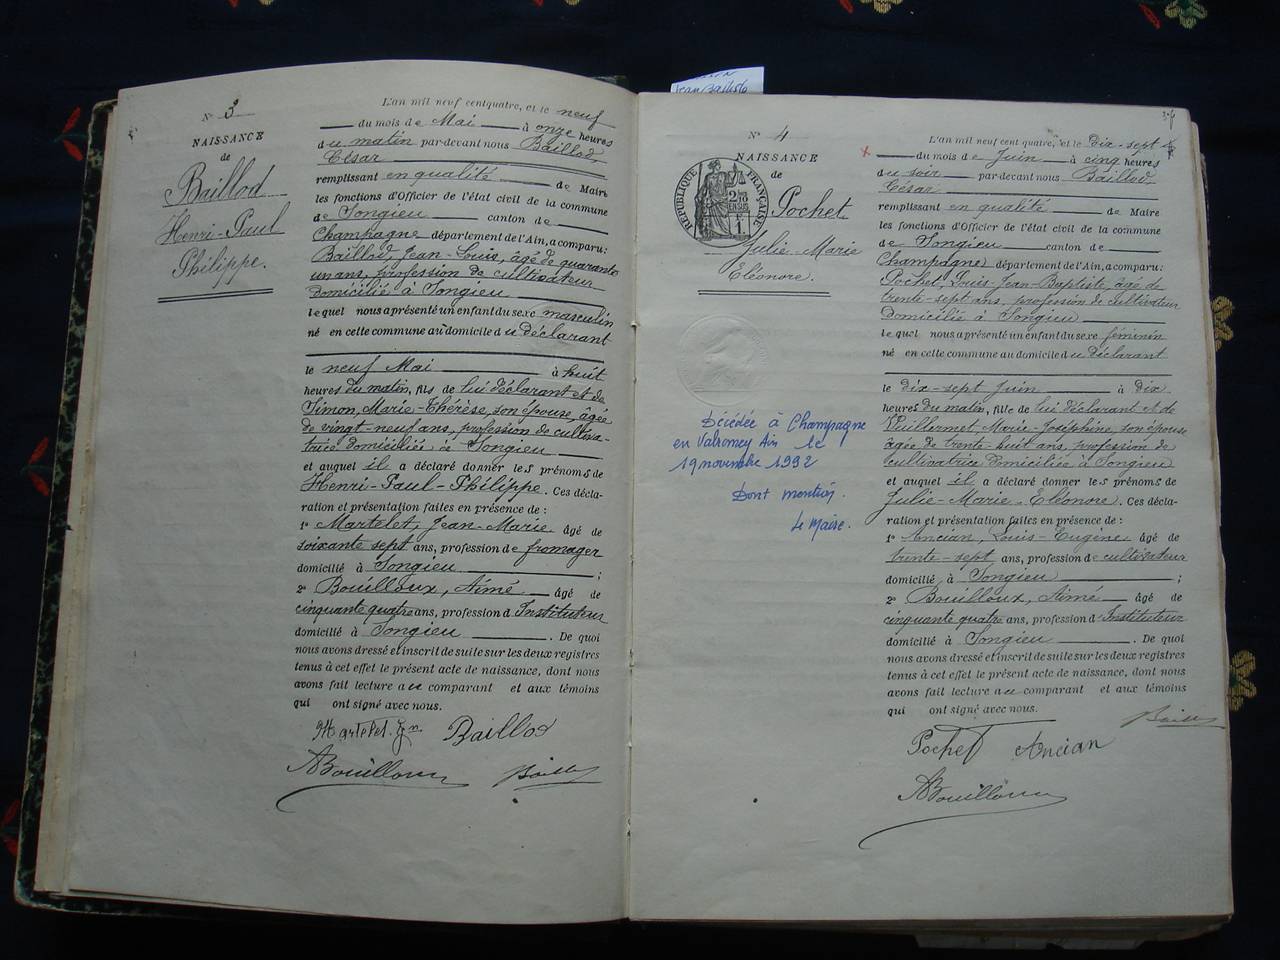 Jean Baptiste
N° 3
NAISSANCE
de
Baillod
Henri-Paul
Philippe.
L'an mil neuf cent quatre, et le neuf
du mois de Mai à onze heures
du matin par-devant nous Baillod,
César
remplissant en qualité de Maire
les fonctions d'Officier de l'état civil de la commune
de Songieu canton de
Champagne département de l'Ain, a comparu:
Baillod, Jean-Louis, âgé de quarante
un ans, profession de cultivateur
domicilié à Songieu
lequel nous a présenté un enfant du sexe masculin
né en cette commune au domicile du déclarant
le neuf Mai à huit
heures du matin, fils de lui déclarant et de
Simon, Marie-Thérèse, son épouse, âgée
de vingt-neuf ans, profession de cultiva-
trice domiciliés à Songieu
et auquel il a déclaré donner les prénoms de
Henri-Paul-Philippe. Ces décla-
ration et présentation faites en présence de :
1° Martelet, Jean-Marie âgé de
soixante sept ans, profession de fromager
domicilié à Songieu ;
2° Bouilloux, Aimé âgé de
cinquante quatre ans, profession d'Instituteur
domicilié à Songieu . De quoi
nous avons dressé et inscrit de suite sur les deux registres
tenus à cet effet le présent acte de naissance, dont nous
avons fait lecture au comparant et aux témoins
qui ont signé avec nous.
Martelet Jn Baillod
ABouilloux Baillod
34
N° 4
NAISSANCE
de
RÉPUBLIQUE FRANÇAISE
Pochet
Julie-Marie
Eléonore.
Décédée à Champagne
en Valromey Ain le
19 novembre 1992
Dont mention.
Le Maire.
L'an mil neuf cent quatre, et le dix-sept
du mois de Juin à cinq heures
du soir par-devant nous Baillod,
César
remplissant en qualité de Maire
les fonctions d'Officier de l'état civil de la commune
de Songieu canton de
Champagne département de l'Ain, a comparu:
Pochet, Louis-Jean-Baptiste, âgé de
trente-sept ans, profession de cultivateur
domicilié à Songieu
lequel nous a présenté un enfant du sexe féminin
né en cette commune au domicile du déclarant
le dix-sept Juin à dix
heures du matin, fille de lui déclarant et de
Vuillermet Marie-Joséphine, son épouse
âgée de trente-huit ans, profession de
cultivatrice domiciliée à Songieu
et auquel il a déclaré donner les prénoms de
Julie-Marie-Eléonore. Ces décla-
ration et présentation faites en présence de :
1° Ancian, Louis-Eugène âgé de
trente-sept ans, profession de cultivateur
domicilié à Songieu ;
2° Bouilloux, Aimé âgé de
cinquante quatre ans, profession d'Instituteur
domicilié à Songieu . De quoi
nous avons dressé et inscrit de suite sur les deux registres
tenus à cet effet le présent acte de naissance, dont nous
avons fait lecture au comparant et aux témoins
qui ont signé avec nous.
Baillod
Pochet Ancian
ABouilloux